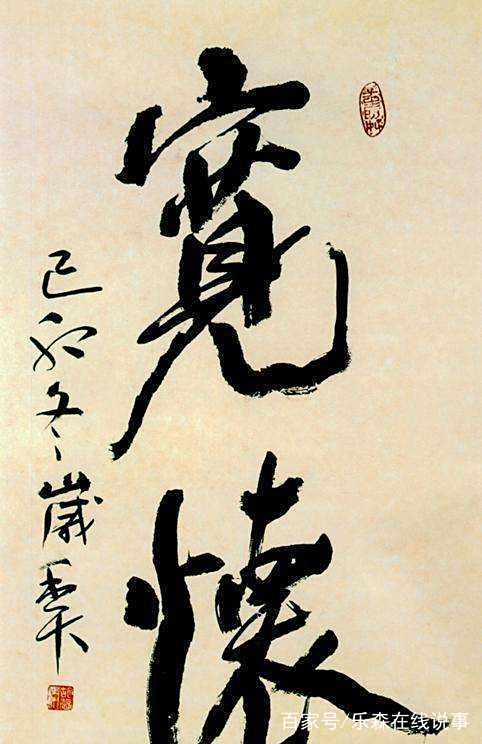 寬懷
己卯冬歲
百家号/乐森在线说事